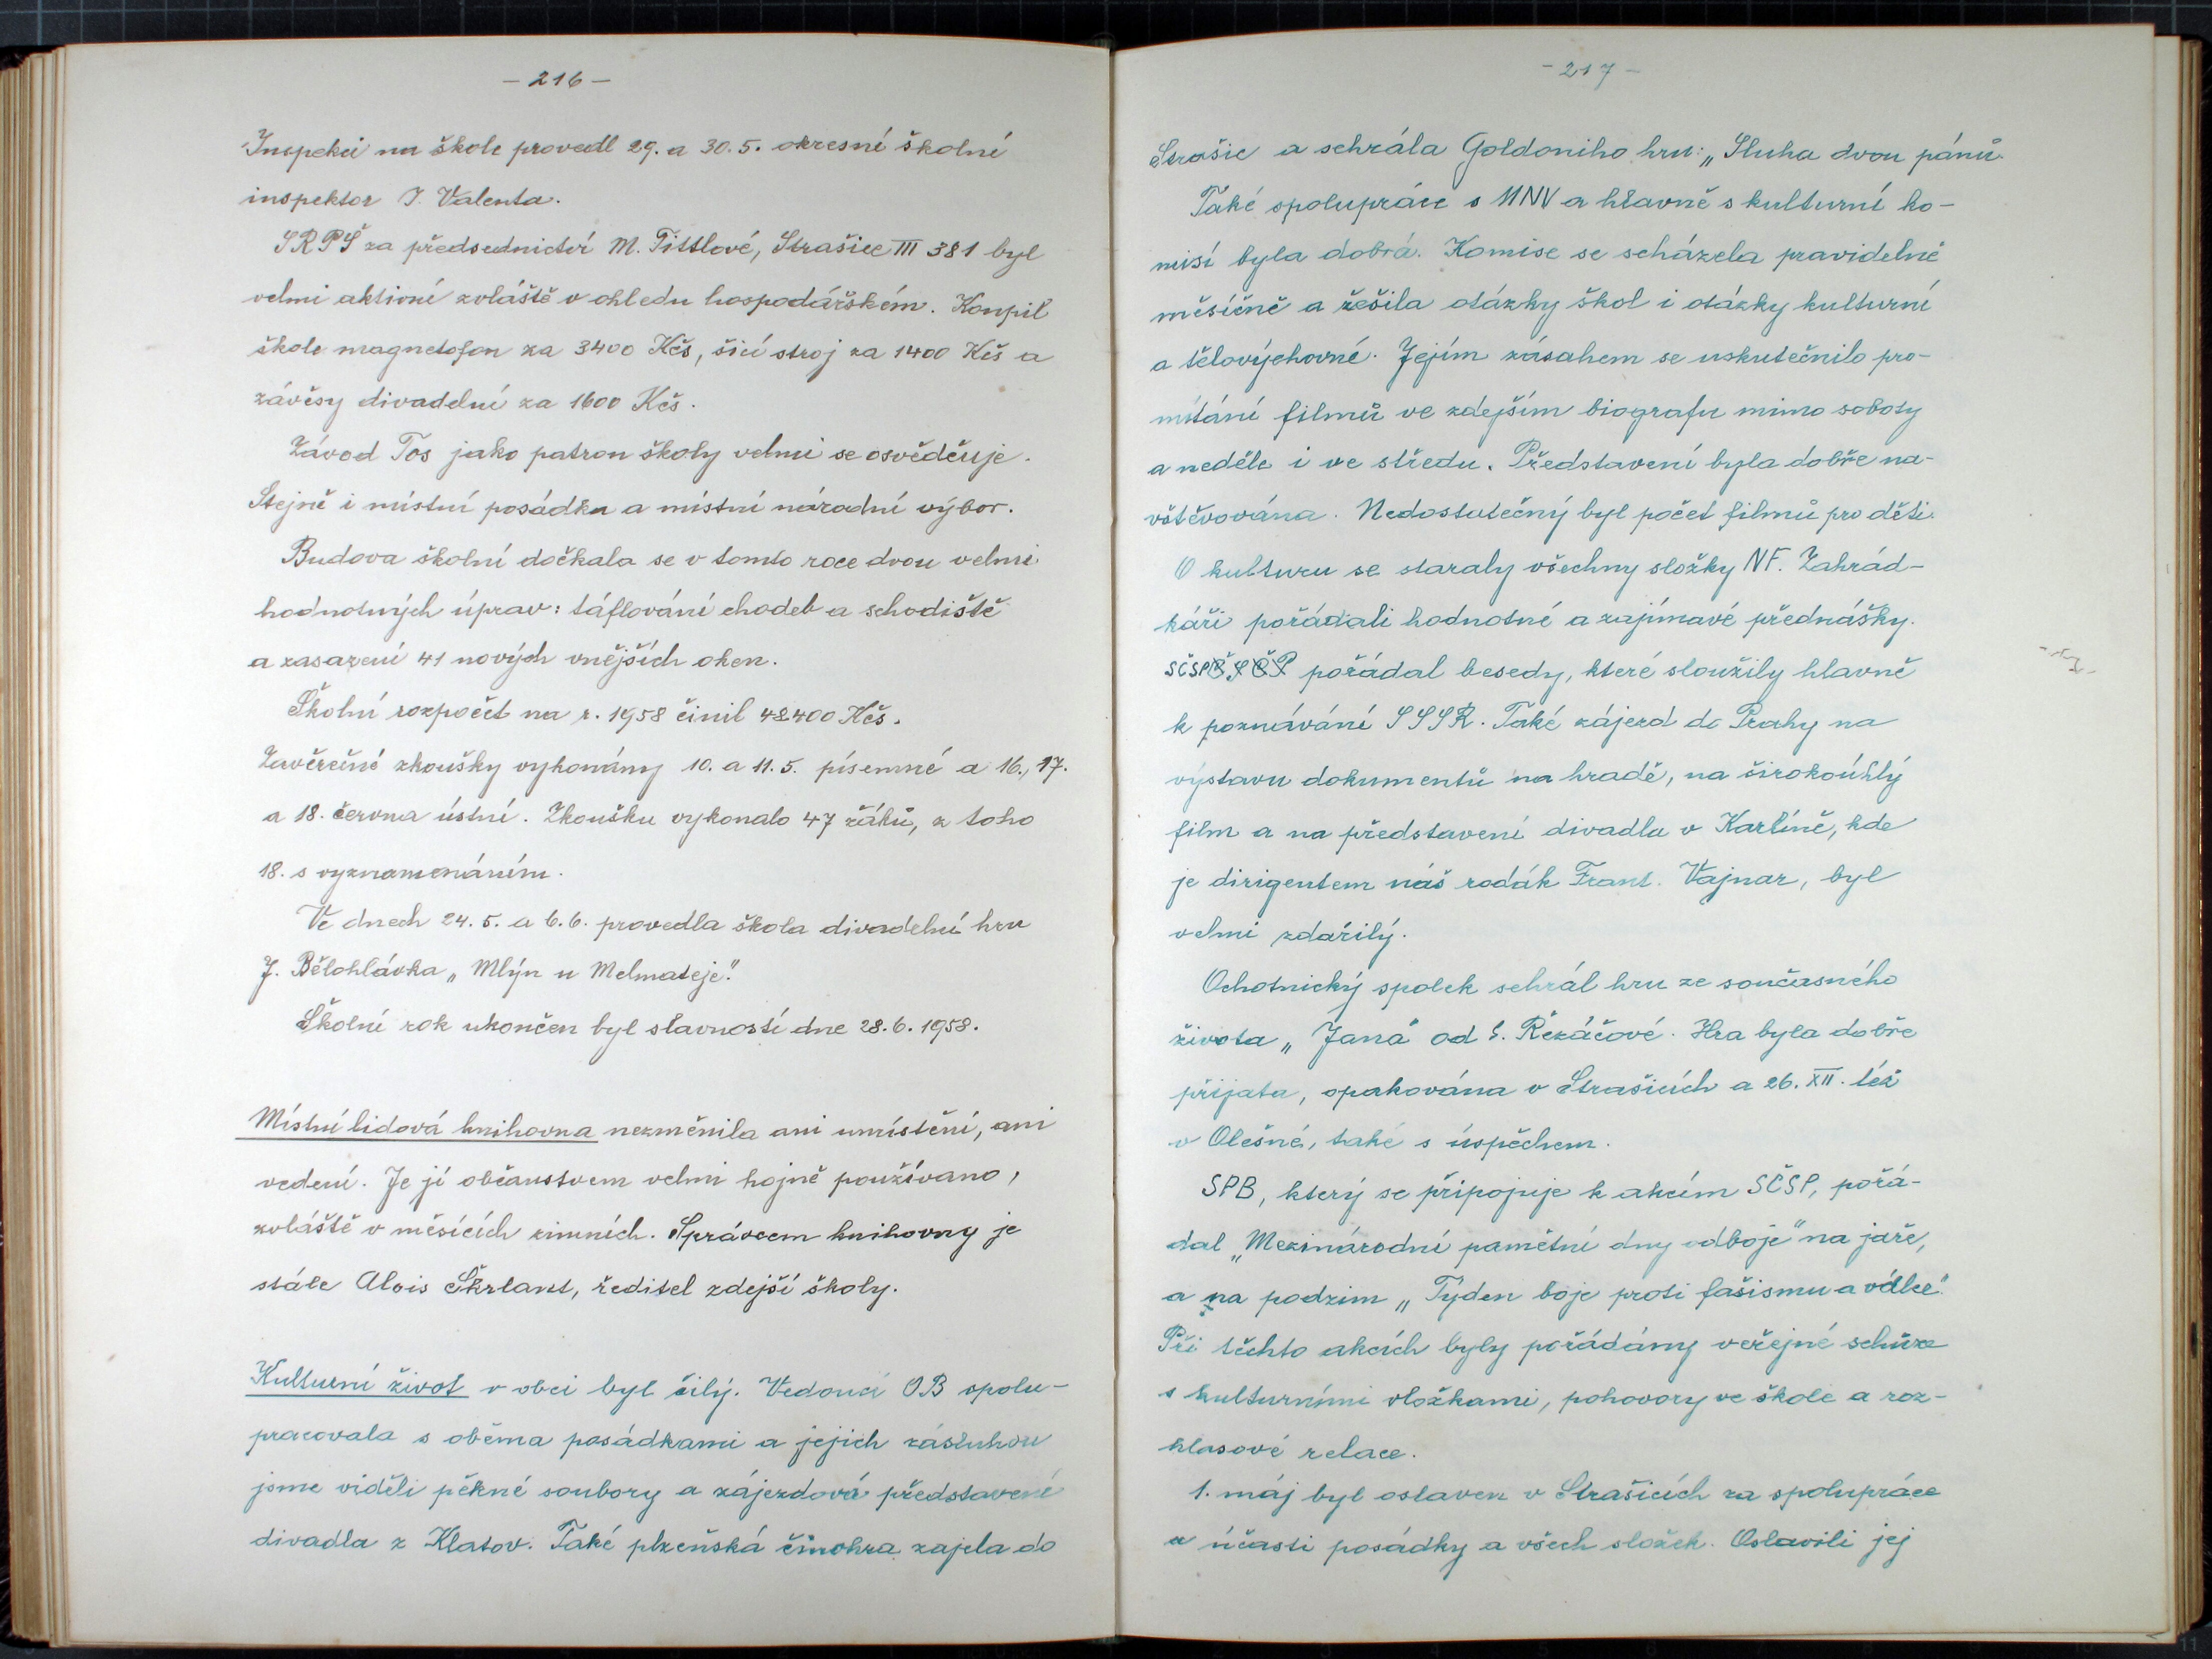 - 216 -
Inspekci na škole provedl 29. a 30. 5. okresní školní
inspektor J. Valenta.
SRPŠ za předsednictví M. Tittlové, Strašice III 381 byl
velmi aktivní zvláště v ohledu hospodářském. Koupil
škole magnetofon za 3400 Kčs, šicí stroj za 1400 Kčs a
závěsy divadelní za 1600 Kčs.
Závod Tos jako patron školy velmi se osvědčuje.
Stejně i místní posádka a místní národní výbor.
Budova školní dočkala se v tomto roce dvou velmi
hodnotných úprav: táflování chodeb a schodiště
a zasazení 41 nových vnějších oken.
Školní rozpočet na r. 1958 činil 42400 Kčs.
Závěrečné zkoušky vykonány 10. a 11. 5. písemné a 16., 17.
a 18. června ústní. Zkoušku vykonalo 47 žáků, z toho
18. s vyznamenáním.
Ve dnech 24. 5. a 6. 6. provedla škola divadelní hru
J. Bělohlávka „Mlýn u Melmateje".
Školní rok ukončen byl slavností dne 28. 6. 1958.
Místní lidová knihovna nezměnila ani umístění, ani
vedení. Je jí občanstvem velmi hojně používano,
zvláště v měsících zimních. Správcem knihovny je
stále Alois Škrlant, ředitel zdejší školy.
Kulturní život v obci byl čilý. Vedoucí OB spolu-
pracovala s oběma posádkami a jejich zásluhou
jsme viděli pěkné soubory a zájezdová představení
divadla z Klatov. Také plzeňská činohra zajela do
- 217 -
Strašic a sehrála Goldoniho hru: „Sluha dvou pánů.
Také spolupráce s MNV a hlavně s kulturní ko-
misí byla dobrá. Komise se scházela pravidelně
měsíčně a řešila otázky škol i otázky kulturní
a tělovýchovné. Jejím zásahem se uskutečnilo pro-
mítání filmů ve zdejším biografu mimo soboty
a neděle i ve středu. Představení byla dobře na-
vštěvována. Nedostatečný byl počet filmů pro děti.
O kulturu se staraly všechny složky NF. Zahrád-
káři pořádali hodnotné a zajímavé přednášky.
SČSP pořádal besedy, které sloužily hlavně
k poznávání SSSR. Také zájezd do Prahy na
výstavu dokumentů na hradě, na širokoúhlý
film a na představení divadla v Karlíně, kde
je dirigentem náš rodák Frant. Vajnar, byl
velmi zdařilý.
Ochotnický spolek sehrál hru ze současného
života „Jana" od E. Řezáčové. Hra byla dobře
přijata, opakována v Strašicích a 26. XII. též
v Olešné, také s úspěchem.
SPB, který se připojuje k akcím SČSP, pořá-
dal „Mezinárodní pamětní dny odboje" na jaře,
a na podzim „Týden boje proti fašismu a válce."
Při těchto akcích byly pořádány veřejné schůze
s kulturními vložkami, pohovory ve škole a roz-
hlasové relace.
1. máj byl oslaven v Strašicích za spolupráce
a účasti posádky a všech složek. Oslavili jej